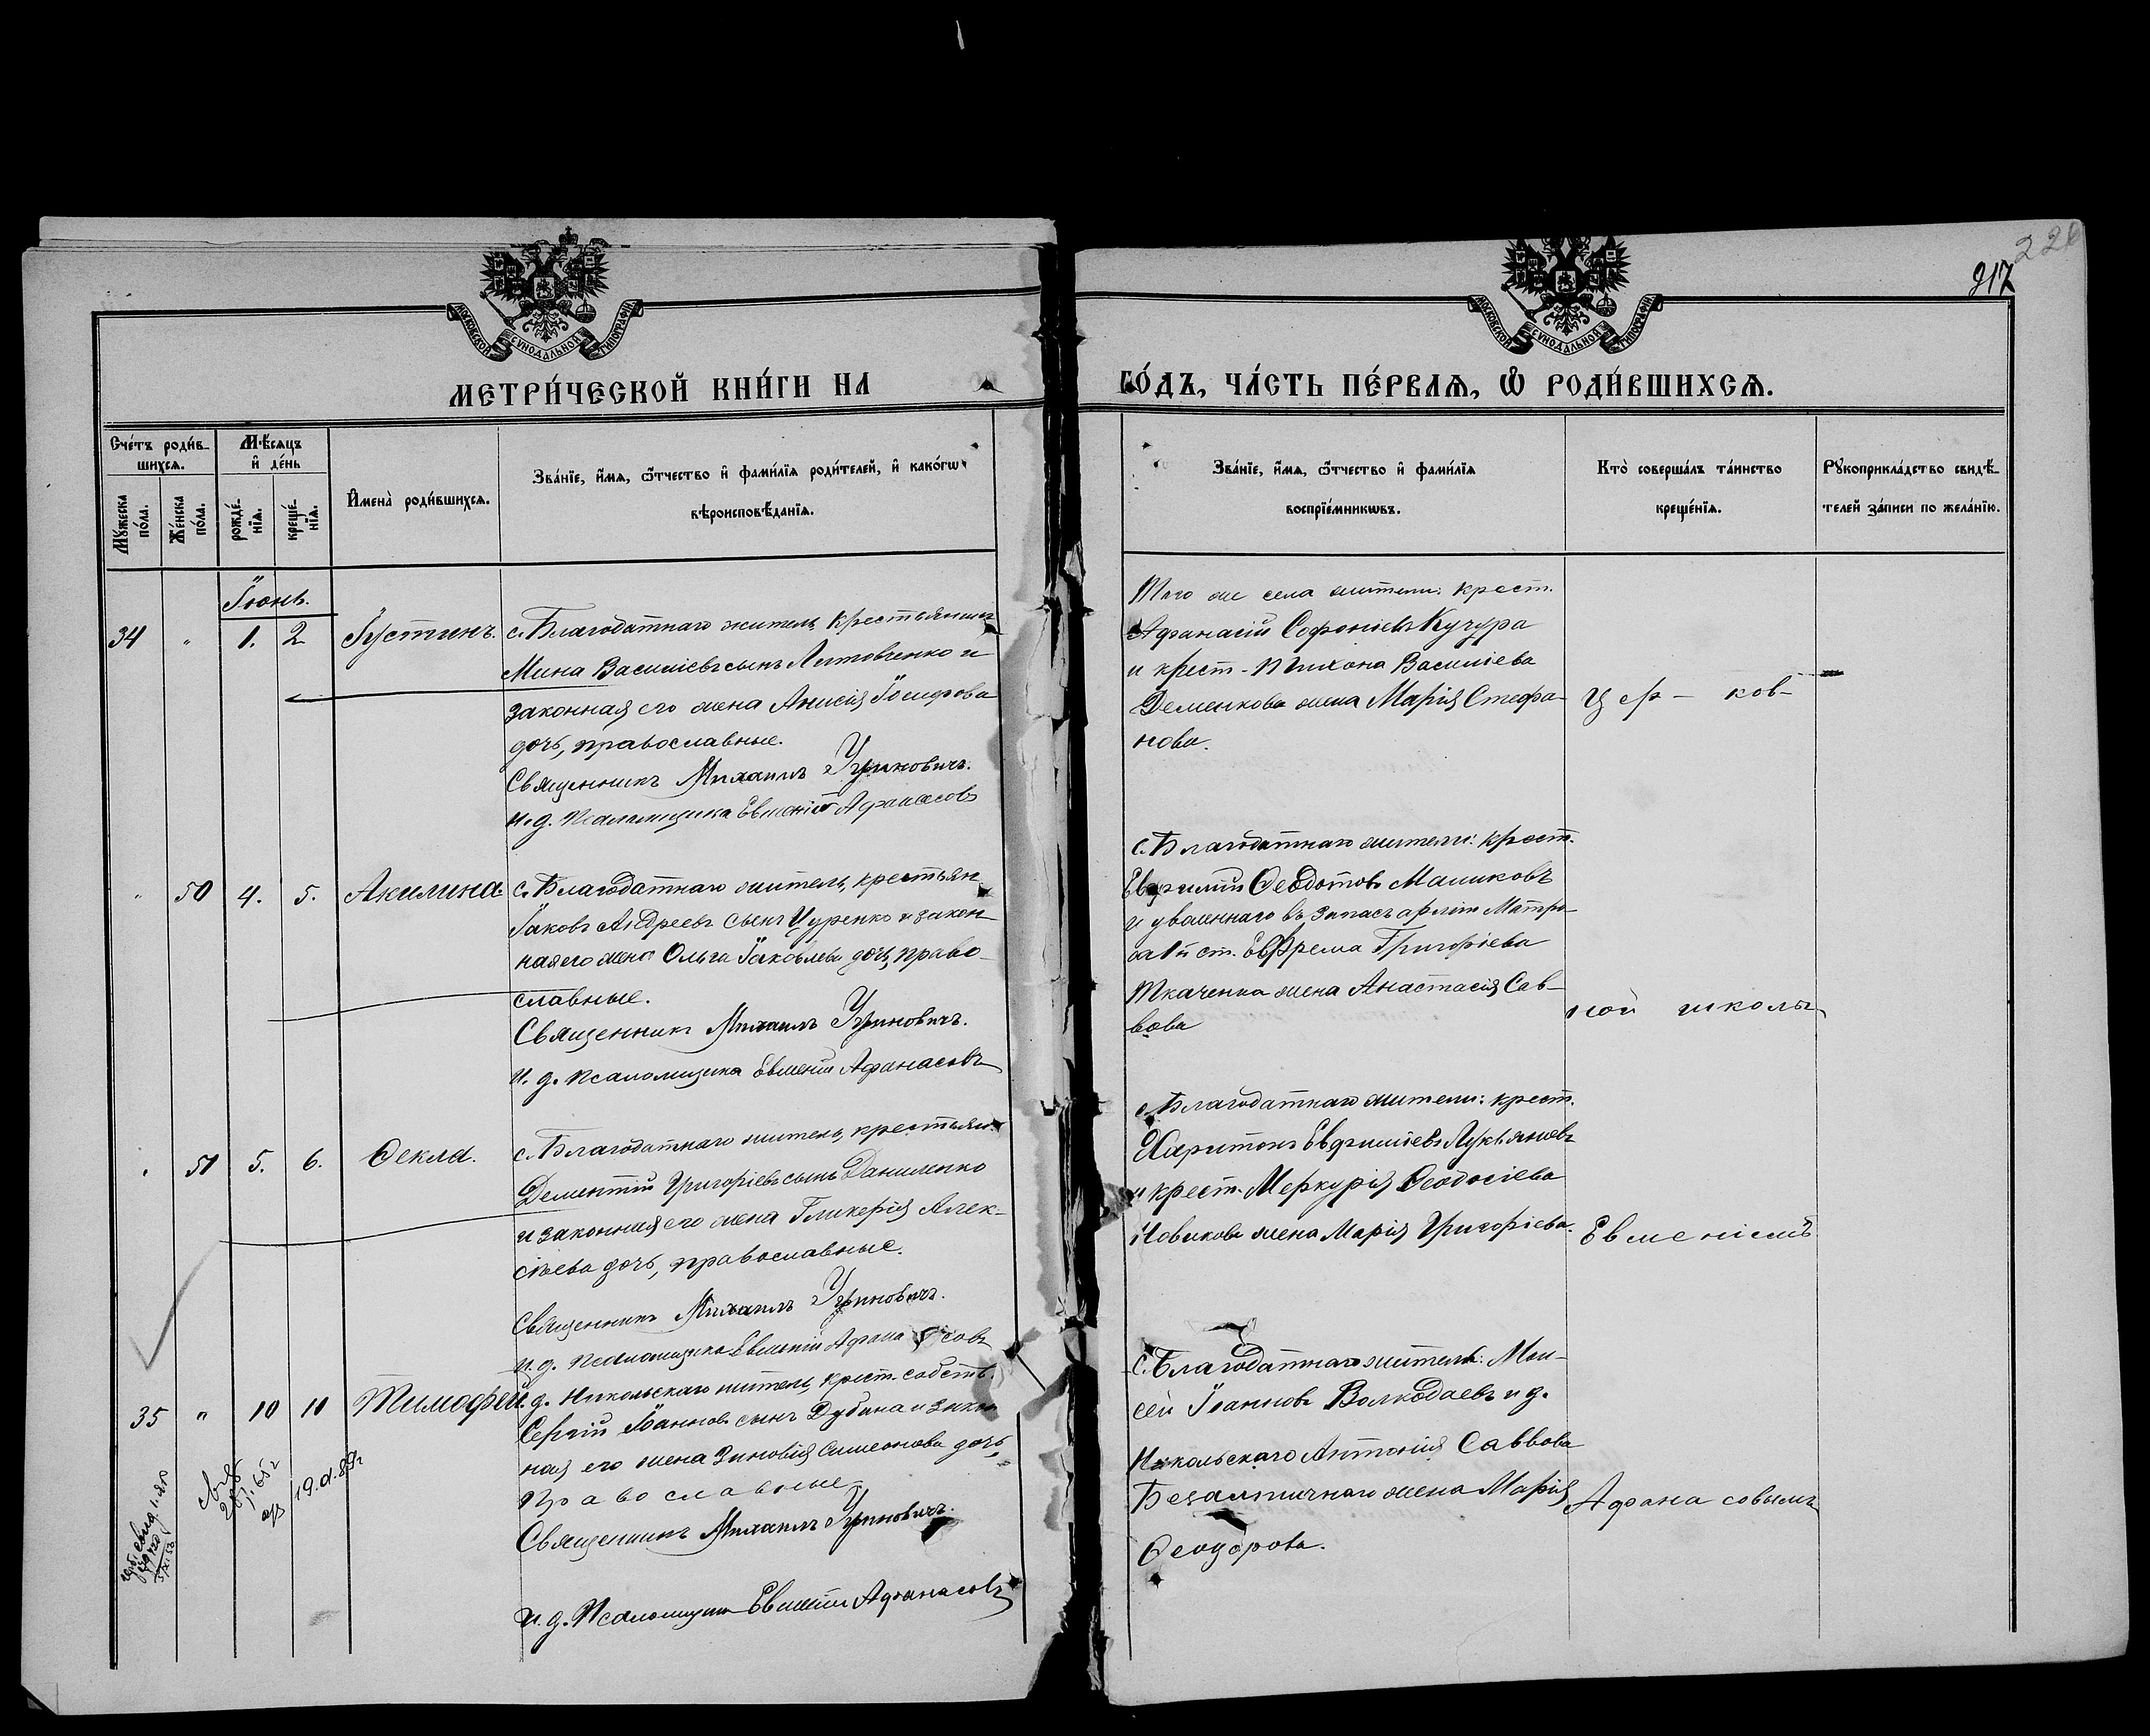 226
217
МОСКОВСКОЙ СѴНОДАЛЬНОЙ ТИПОГРАФІИ
МОСКОВСКОЙ СѴНОДАЛЬНОЙ ТИПОГРАФІИ
МЕТРИ́ЧЕСКОЙ КНИ́ГИ НА ГО́ДЪ, ЧА́СТЬ ПЕ́РВАѦ, Ѡ РОДИ́ВШИХСѦ.
Счетъ роди́в-
шихсѧ.
Мѣ́сѧцъ
и҆ де́нь
Мꙋ́жеска
по́ла.
Же́нска
по́ла.
рожде́-
нїѧ.
креще́-
нїѧ.
И҆мена̀ роди́вшихсѧ.
Зва́нїе, и҆́мѧ, ѻ҆́тчество и҆ фами́лїѧ роди́телей, и҆ како́гѡ
вѣроисповѣ́данїѧ.
Зва́нїе, и҆́мѧ, ѻ҆́тчество и҆ фами́лїѧ
воспрїе́мникѡвъ.
Кто̀ соверша́лъ та́инство
креще́нїѧ.
Рꙋкоприкла́дство свидѣ́-
телей за́писи по жела́нїю.
Іюнь.
34 " 1. 2 Іустинъ.
с. Благодатнаго житель, крестьянинъ
Мина Василіевъ сынъ Литовченко и
законная его жена Анисія Іосифова
дочь, православные.
Священникъ Михаилъ Угриновичъ.
и. д. Псаломщика Евменій Афанасовъ
Того же села жители: крест.
Афанасій Софоніевъ Кучура
и крест. Тихона Василіева
Деменкова жена Марія Стефа-
нова.
Цер- ков-
" 50 4. 5. Акилина.
с. Благодатнаго житель, крестьян
Іаковъ Андреевъ сынъ Цуренко и закон-
ная его жена Ольга Іаковлева дочь, право-
славные.
Священникъ Михаилъ Угриновичъ.
и. д. псаломщика Евменій Афанасовъ
с. Благодатнаго жители: крест.
Евфимій Ѳеодотовъ Маликовъ
и уволеннаго въ запасъ арміи Матро-
са 1й ст. Ефрема Григоріева
Ткаченка жена Анастасія Сав-
вова
ной школы
" 51 5. 6. Ѳекла.
с. Благодатнаго житель, крестьян.
Дементій Григоріевъ сынъ Даниленко
и законная его жена Гликерія Алек-
сіева дочь, православные.
Священникъ Михаилъ Угриновичъ.
и. д. псаломщика Евменій Афанасовъ
с. Благодатнаго жители: крест.
Харитонъ Евфиміевъ Лукьяновъ
и крест. Меркурія Ѳеодосіева
Новикова жена Марія Григоріева.
Евменіемъ
35 " 10 11 Тимофей.
д. Никольскаго житель, крест. собств.
Сергій Іоанновъ сынъ Дубина и закон
ная его жена Зиновія Симеонова дочь,
Православные.
Священникъ Михаилъ Угриновичъ.
и. д. Псаломщика Евменій Афанасовъ
с. Благодатнаго житель: Мои-
сей Іоанновъ Волкодаевъ и д.
Никольскаго Антонія Саввова
Безалтичнаго жена Марія
Ѳеодорова.
Афанасовымъ